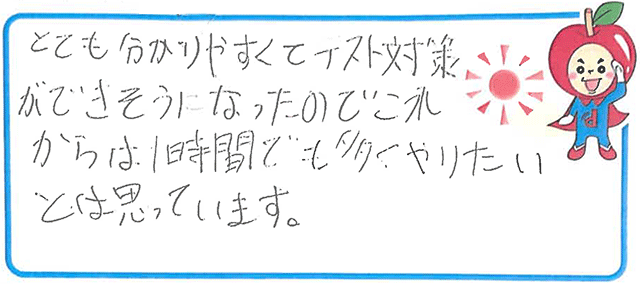 とても分かりやすくてテスト対策
ができそうになったのでこれ
からは1時間でも多くやりたい
とは思っています。